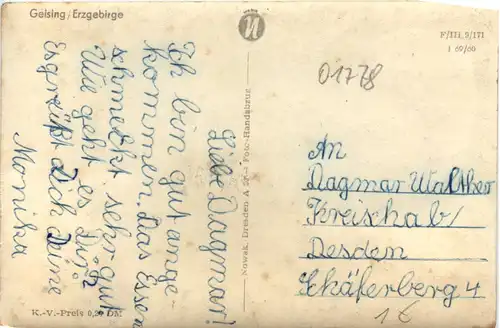 Geising/Erzgebirge
F/III 9/171
1 69/60
01778
Liebe Dagmar!
Ich bin gut ange-
kommen. Das Essen
schmeckt sehr gut
Wie geht es Dir?
Es grüßt Dich Deine
Monika
An
Dagmar Walther
Kreischab/
Desden
Schäferberg 4
Nowak, Dresden A 20 - Foto-Handabzug
K.-V.-Preis 0,20 DM
1€